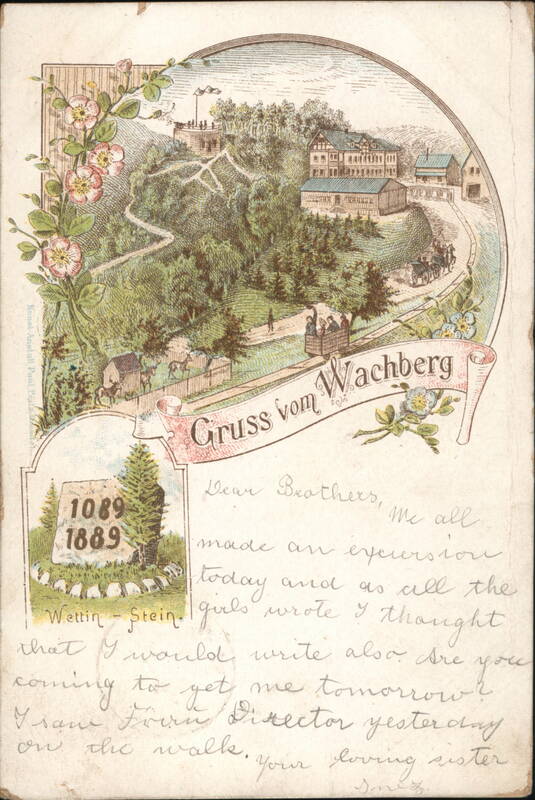 Gruss vom Wachberg
1089
1889
Wettin - Stein.
Dear Brothers,
We all
made an excursion
today and as all the
girls wrote I thought
that I would write also. Are you
coming to get me tomorrow?
I saw Director yesterday
on the walk. Your loving sister